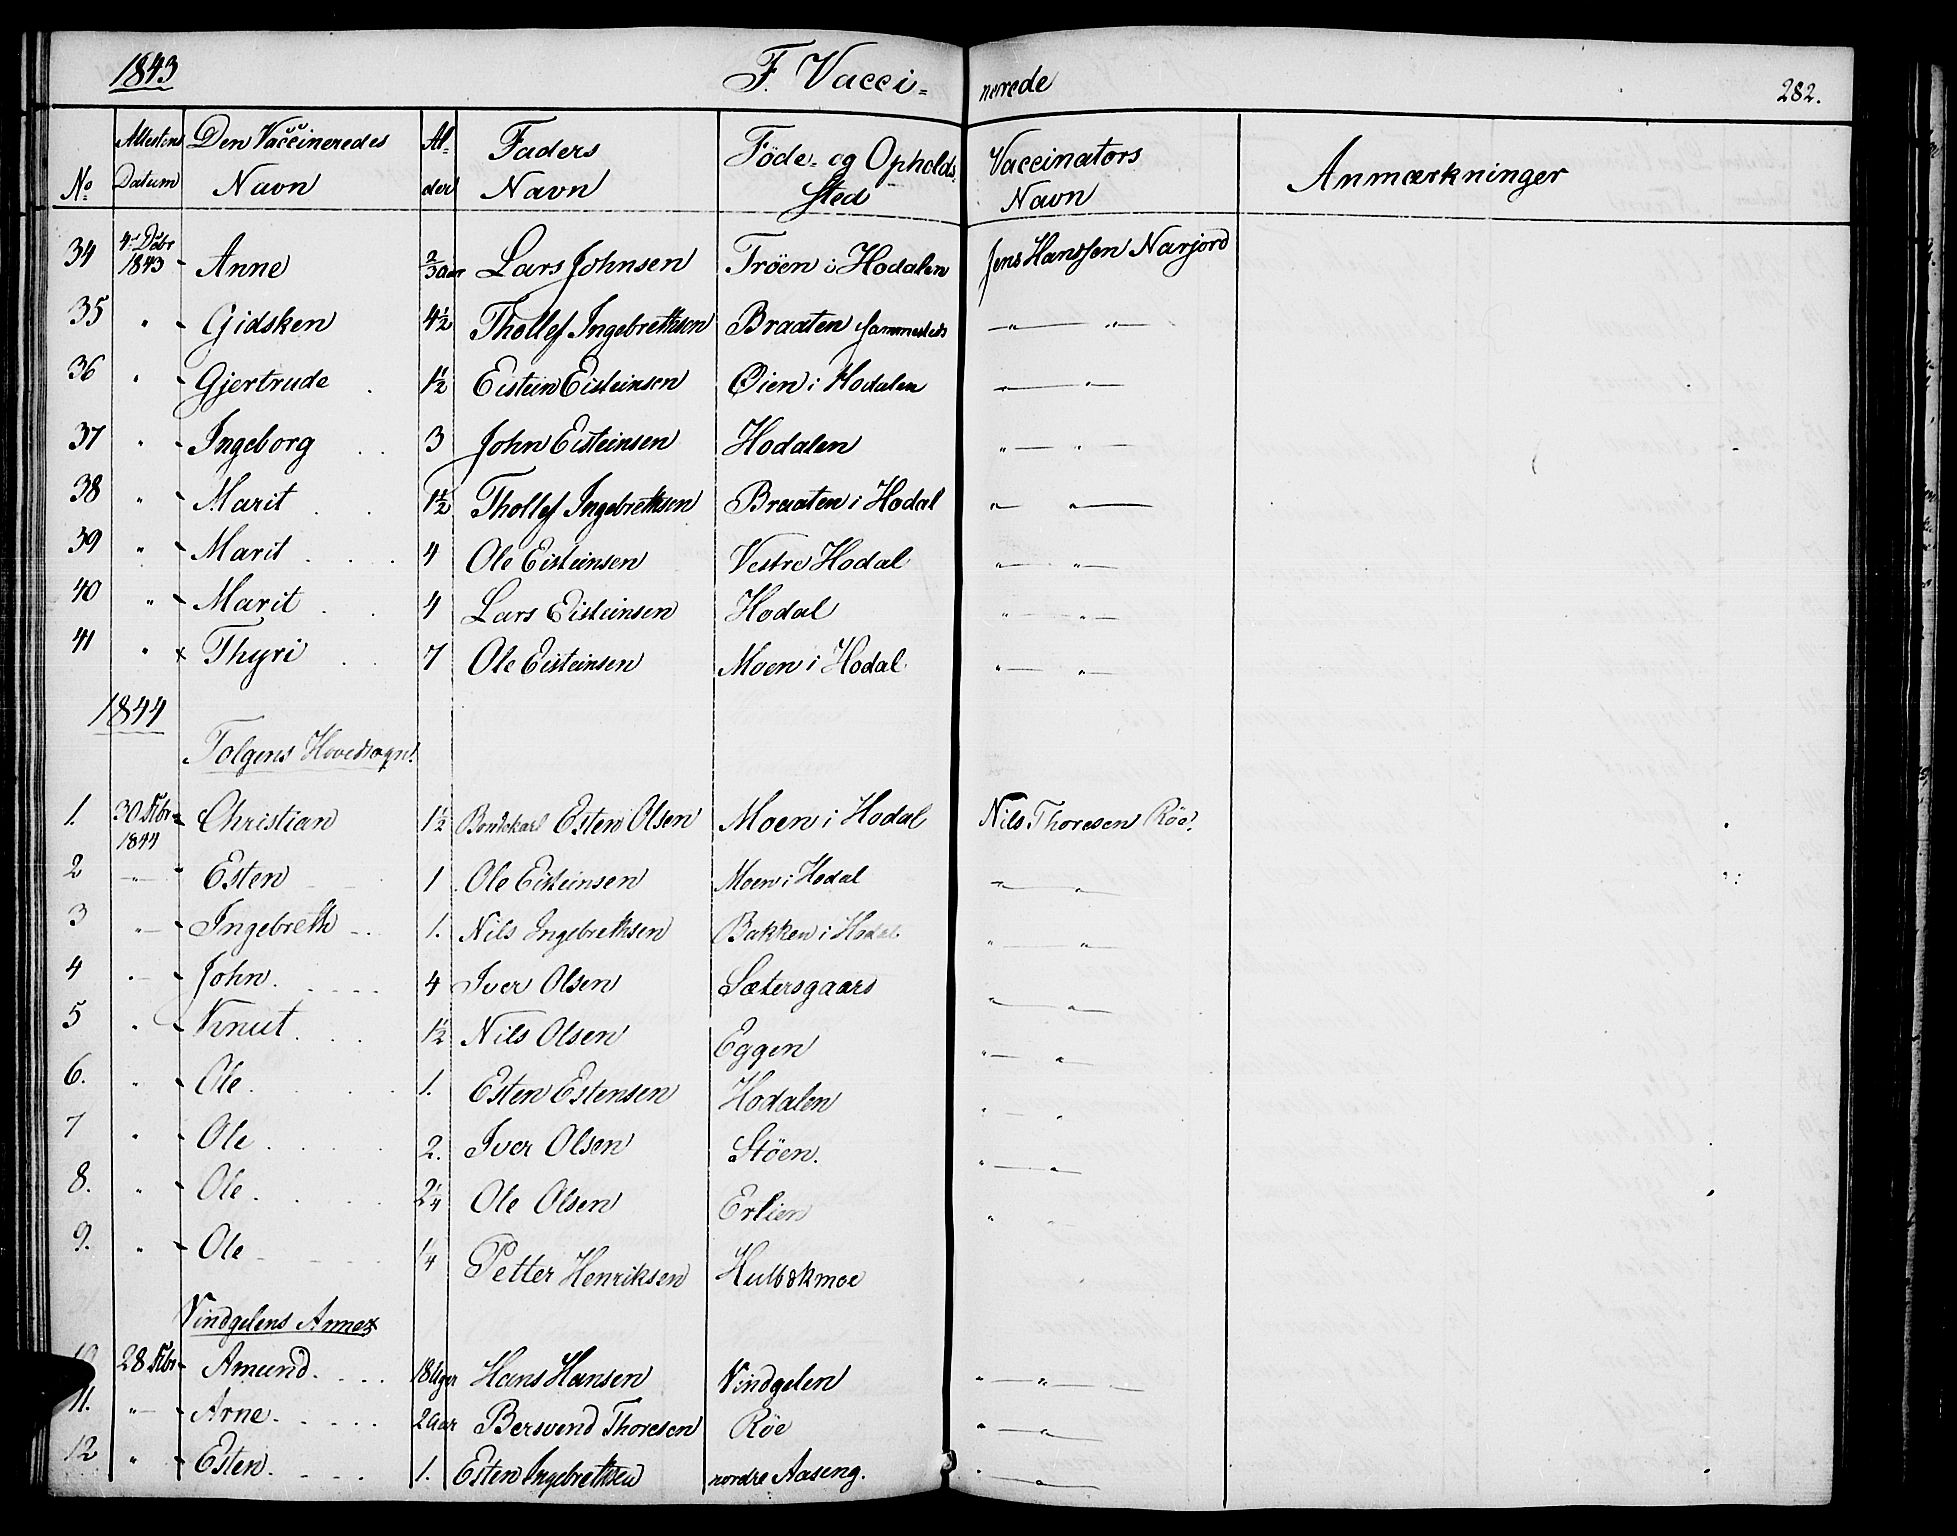 1843 F. Vacci= nerede 282.
No Attestens Datum Den Vaccineredes Navn Al- der Faders Navn Føde- og Opholds Sted Vaccinators Navn Anmærkninger
34 4d Dcbr 1843 - Anne 2/3 Aar Lars Johnsen Trøen i Hodalen Jens Hanssen Narjord
35 " - Gidsken 4 1/2 Thollef Ingebrethsen Braaten sammesteds " "
36 " - Gjertrude . 1 1/2 Eistein Eisteinsen Øien i Hodalen " "
37 " - Ingeborg . . 3 John Eisteinsen Hodalen " "
38 " - Marit . . 1 1/2 Thollef Ingebrethsen Braaten i Hodal " "
39 " - Marit . . . 4 Ole Eisteinsen Vestre Hodal " "
40 " - Marit . . 4 Lars Eisteinsen Hodal " "
41 " x Thyri . . 7 Ole Eisteinsen Moen i Hodal " "
1844
Tolgens Hovedsogn.
1. 30 Febr 1844 - Christian 1 1/2 Esten Olsen Moen i Hodal Nils Thoresen Røe.
2 " - Esten 1 Ole Eisteinsen Moen i Hodal " "
3 " - Ingebreth 1. Nils Ingebrethsen Bakken i Hodal " "
4 " - John. 4 Iver Olsen Sætersgaard " "
5 " - Knut . . . 1 1/2 Nils Olsen Eggen " "
6. " - Ole . . . 1. Esten Estensen Hodalen " "
7 " - Ole . . . 2. Iver Olsen Støen. " "
8. " - Ole . . . 2 1/4 Ole Olsen Erlien " "
9. " - Ole 1/4 Petter Henriksen Hulbækmoe
Vindgelens Annex
10 28 Febr - Amund. 18 Uger Hans Hansen Vindgelen " "
11. " - Arne. 2 Aar Bersvend Thoresen Røe " "
12 " - Esten. 1. Esten Ingebrethsen nordre Aaseng. " "